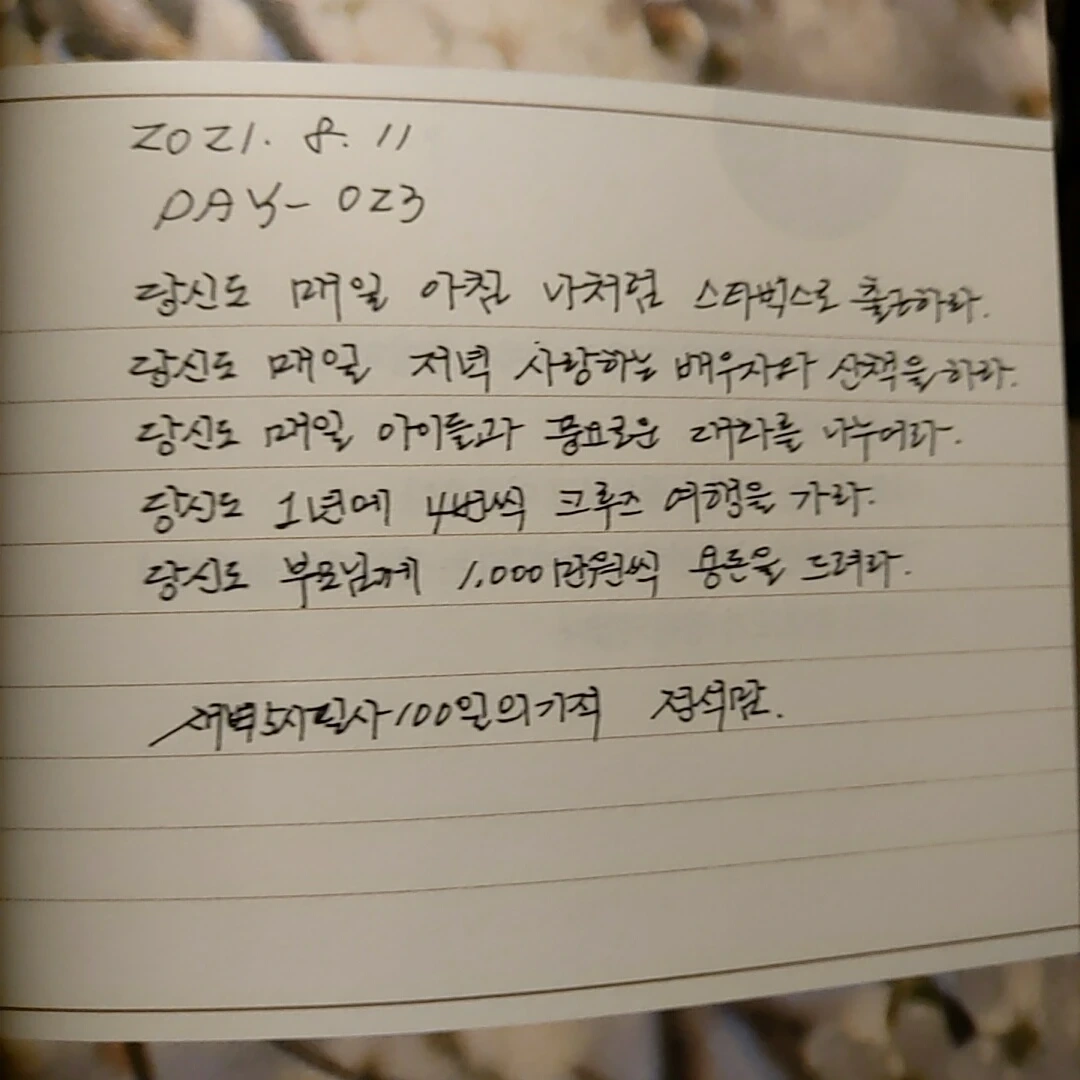 2021. 8. 11
DAY- 023
당신도 매일 아침 나처럼 스타벅스로 출근하라.
당신도 매일 저녁 사랑하는 배우자와 산책을 하라.
당신도 매일 아이들과 풍요로운 대화를 나누어라.
당신도 1년에 4번씩 크루즈 여행을 가라.
당신도 부모님께 1,000만원씩 용돈을 드려라.
새벽5시필사100일의기적 정석맘.